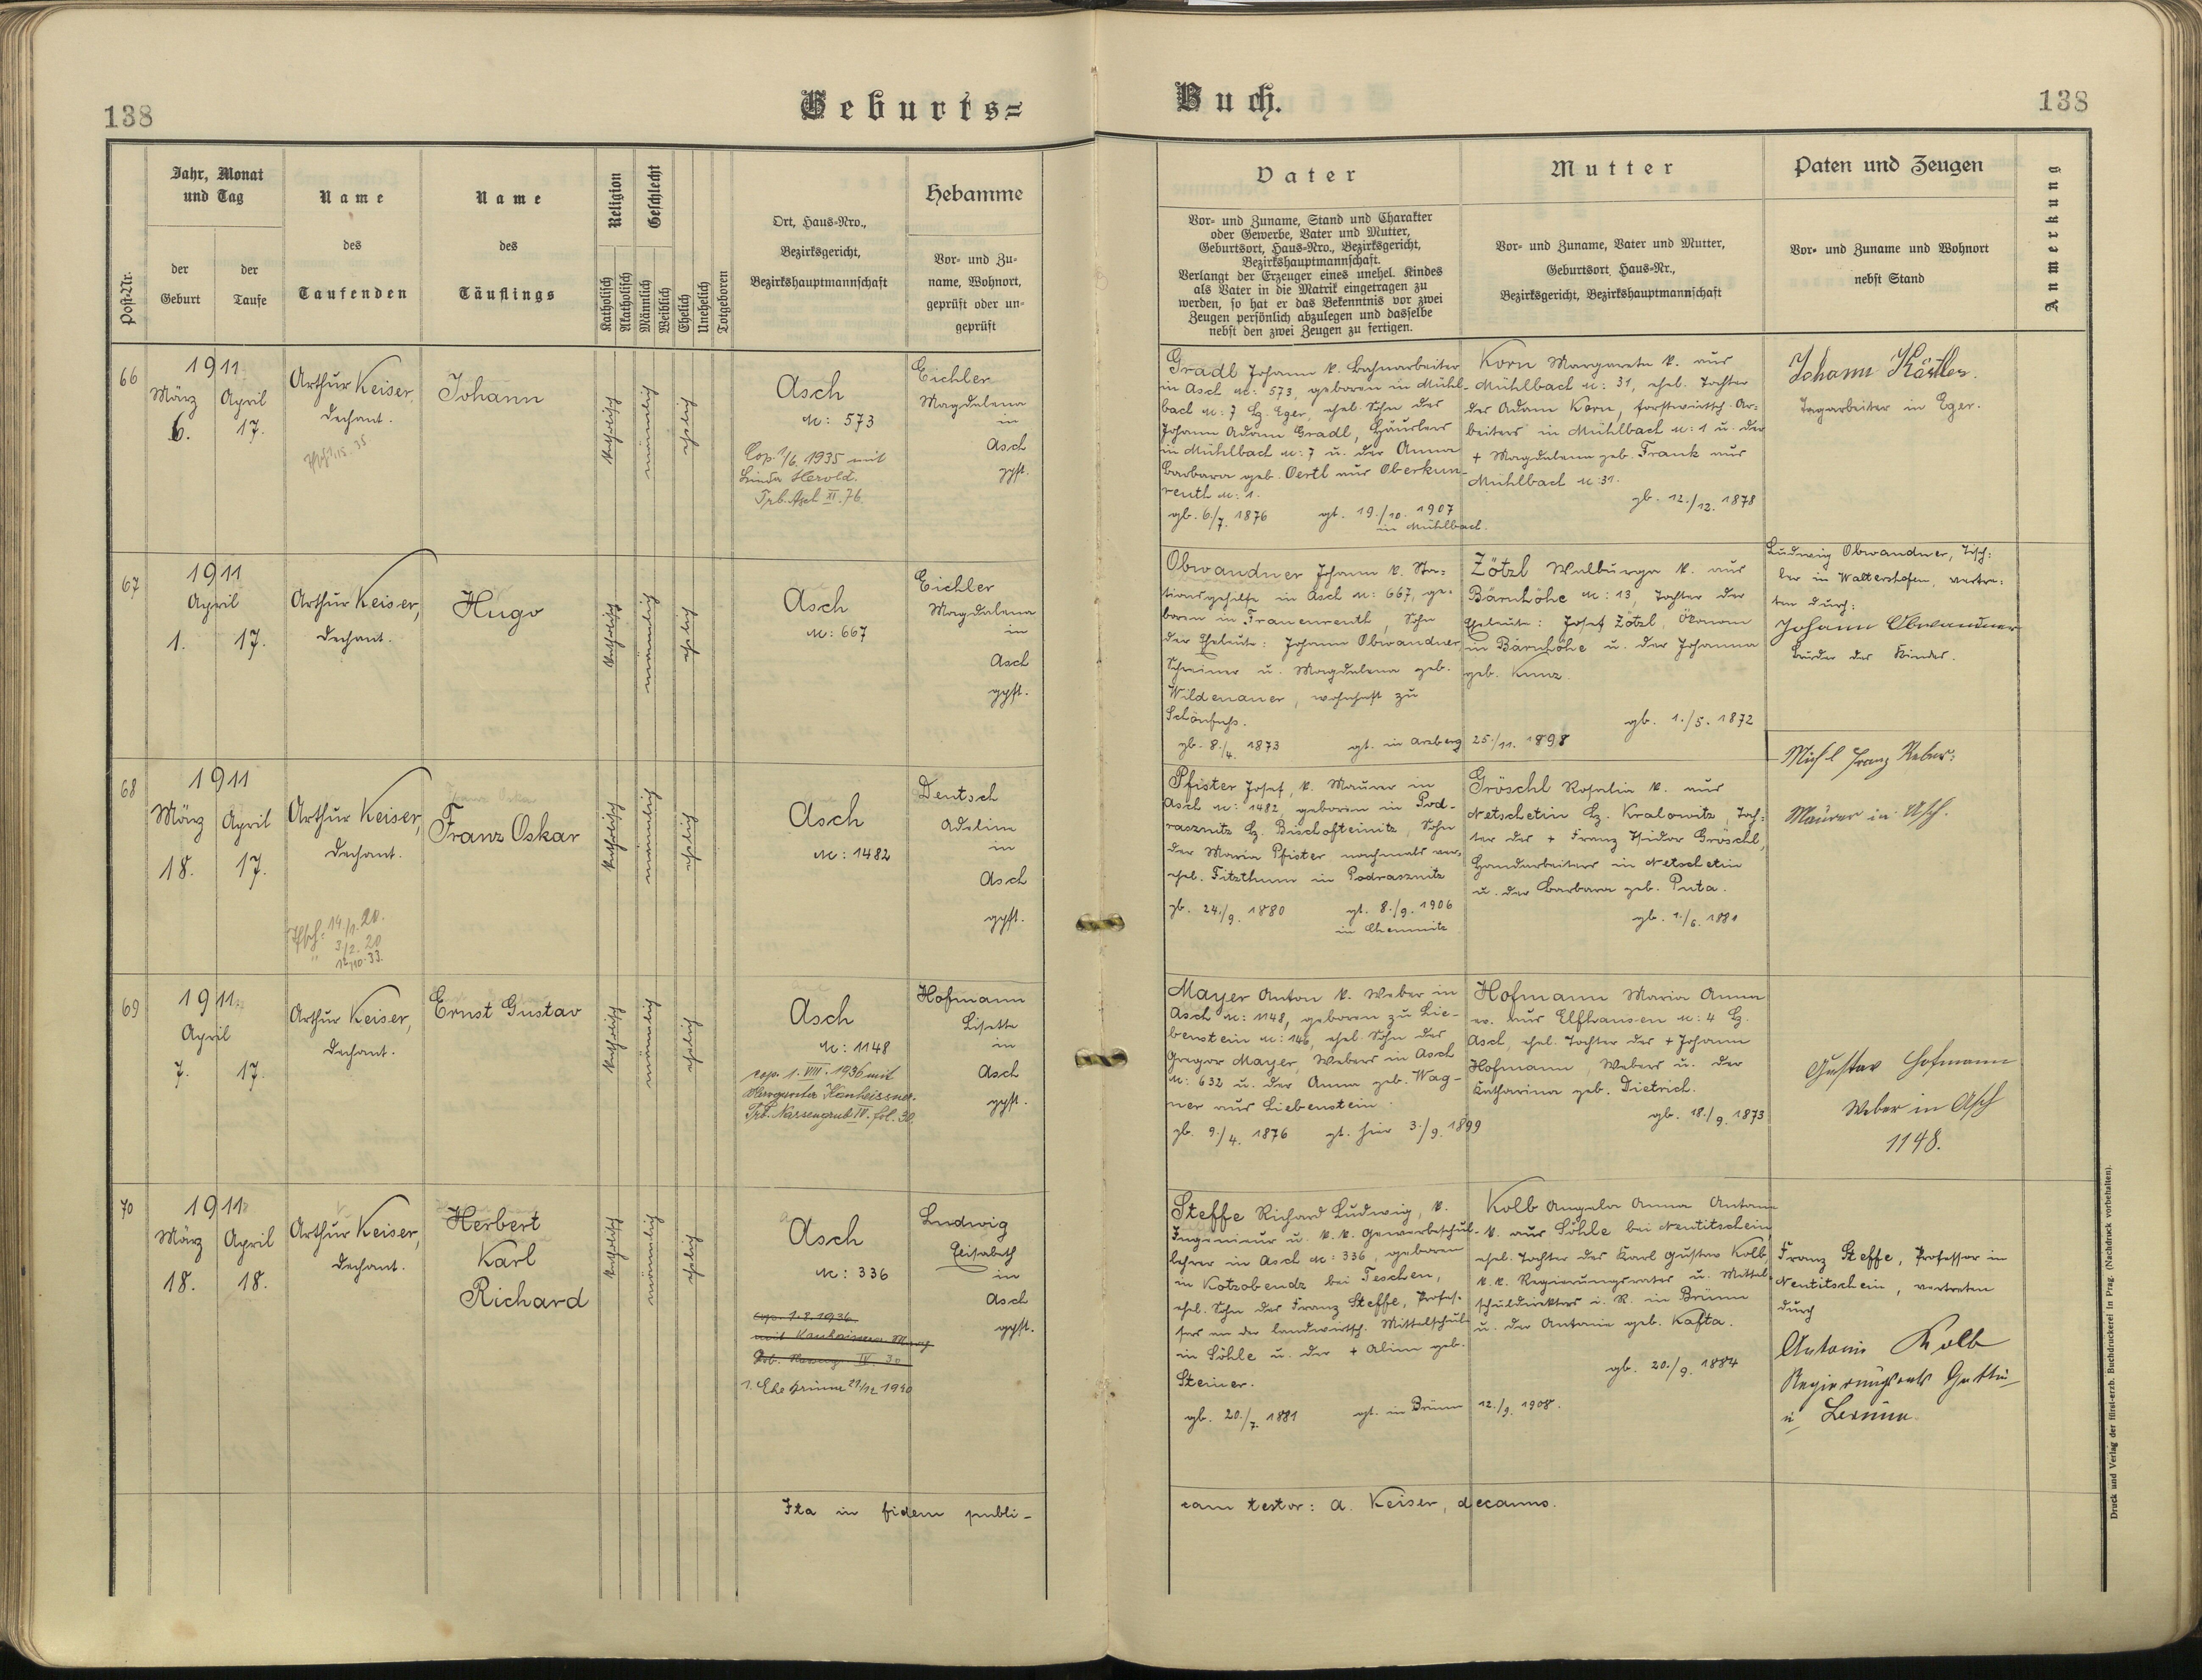 138
Geburts=
Buch.
138
Post-Nr.
Jahr, Monat
und Tag
der
Geburt
der
Taufe
Name
des
Taufenden
Name
des
Täuflings
Religion
Katholisch
Akatholisch
Geschlecht
Männlich
Weiblich
Ehelich
Unehelich
Totgeboren
Ort, Haus-Nro.,
Bezirksgericht,
Bezirkshauptmannschaft
Hebamme
Vor- und Zu-
name, Wohnort,
geprüft oder un-
geprüft
Vater
Vor- und Zuname, Stand und Charakter
oder Gewerbe, Vater und Mutter,
Geburtsort, Haus-Nro., Bezirksgericht,
Bezirkshauptmannschaft.
Verlangt der Erzeuger eines unehel. Kindes
als Vater in die Matrik eingetragen zu
werden, so hat er das Bekenntnis vor zwei
Zeugen persönlich abzulegen und dasselbe
nebst den zwei Zeugen zu fertigen.
Mutter
Vor- und Zuname, Vater und Mutter,
Geburtsort, Haus-Nr.,
Bezirksgericht, Bezirkshauptmannschaft
Paten und Zeugen
Vor- und Zuname und Wohnort
nebst Stand
Anmerkung
66
1911
März
6.
April
17.
Arthur Keiser,
Dechant.
Johann
katholisch
männlich
ehelich
Asch
N: 573
Cop. 1/6. 1935 mit
Linda Herold.
Trb. Asch XI. 76.
Eichler
Magdalena
in
Asch
gpft.
Gradl Johann k. Bahnarbeiter
in Asch N: 573, geboren in Mühl-
bach N: 7 Bz. Eger, ehel. Sohn des
Johann Adam Gradl, Häuslers
in Mühlbach N: 7 u. der Anna
Barbara geb. Oertl aus Oberkun-
reuth N: 1.
gb. 6./7. 1876 gt. 19./10. 1907
in Mühlbach.
Korn Margareta k. aus
Mühlbach N: 31, ehel. Tochter
des Adam Korn, forstwirtsch. Ar-
beiters in Mühlbach N: 1 u. der
+ Magdalena geb. Frank aus
Mühlbach N: 31.
gb. 12./12. 1878
Johann Kästler.
Tagarbeiter in Eger.
67
1911
April
1.
17.
Arthur Keiser,
Dechant.
Hugo
katholisch
männlich
ehelich
Asch
N: 667
Eichler
Magdalena
in
Asch
gpft.
Obwandner Johann k. Sta-
tionsgehilfe in Asch N: 667, ge-
boren in Frauenreuth, Sohn
der Eheleute: Johann Obwandner,
Schreiner u. Magdalena geb.
Wildenauer, wohnhaft zu
Schönfuß.
gb. 8./4. 1873 gt. in Arzberg 25./11. 1898
Zötzl Walburga k. aus
Bärnhöhe N: 13, Tochter der
Eheleute: Josef Zötzl, Ökonom
in Bärnhöhe u. der Johanna
geb. Kunz.
gb. 1./5. 1872
Ludwig Obwandner, Tisch-
ler in Waltershofen, vertre-
ten durch:
Johann Obwandner
Bruder des Kindes.
68
1911
März
18.
April
17.
Arthur Keiser,
Dechant.
14/1. 20.
3/2. 20
12/10. 33.
Franz Oskar
katholisch
männlich
ehelich
Asch
N: 1482
Deutsch
Adeline
in
Asch
gpft.
Pfister Josef, k. Maurer in
Asch N: 1482, geboren in Pod-
rasznitz Bz. Bischofteinitz, Sohn
der Maria Pfister, nachmals ver-
ehel. Fitzthum in Podrasznitz
gb. 24./9. 1880 gt. 8./9. 1906
in Chemnitz
Gröschl Rosalia k. aus
Netschetin Bz. Kralowitz, Toch-
ter des + Franz Isidor Gröschl,
Handarbeiters in Netschetin
u. der Barbara geb. Puta.
gb. 1./6. 1881
Franz
Maurer in Asch.
69
1911
April
7.
17.
Arthur Keiser,
Dechant.
Ernst Gustav
katholisch
männlich
ehelich
Asch
N: 1148
cop. 1. VIII. 1936 mit
Margareta Kanheissner.
Trb. Nassengrub IV. fol. 30.
Hofmann
Lisette
in
Asch
gpft.
Mayer Anton k. Weber in
Asch N: 1148, geboren zu Lie-
benstein N: 146, ehel. Sohn des
Gregor Mayer, Webers in Asch
N: 632 u. der Anna geb. Wag-
ner aus Liebenstein.
gb. 9./4. 1876 gt. hier 3./9. 1899
Hofmann Maria Anna
ev. aus Elfhausen N: 4 Bz.
Asch, ehel. Tochter des + Johann
Hofmann, Webers u. der
Katharina geb. Dietrich.
gb. 18./9. 1873
Gustav Hofmann
Weber in Asch
1148.
70
1911
März
18.
April
18.
Arthur Keiser,
Dechant.
Herbert
Karl
Richard
katholisch
männlich
ehelich
Asch
N: 336
cop. 1.8.1936
mit
IV. 30
1. Ehe Brünn 21/12 1940
Ludwig
Elisabeth
in
Asch
gpft.
Steffe Richard Ludwig, k.
Ingenieur u. k. k. Gewerbeschul-
lehrer in Asch N: 336, geboren
in Kotzobendz bei Teschen,
ehel. Sohn des Franz Steffe, Profes-
sors an der landwirtsch. Mittelschule
in Söhle u. der + Aline geb.
Steiner.
gb. 20./7. 1881 gt. in Brünn 12./9. 1908.
Kolb Angela Anna Antonie
k. aus Söhle bei Neutitschein,
ehel. Tochter des Karl Gustav Kolb,
k. k. Regierungsrates u. Mittel-
schuldirektors i. R. in Brünn
u. der Antonie geb. Kafta.
gb. 20./9. 1884
Franz Steffe, Professor in
Neutitschein, vertreten
durch
Antonie Kolb
Regierungsrats Gattin
in Brünn.
Ita in fidem publi-
cam testor: A. Keiser, decanus.
Druck und Verlag der fürst-erzb. Buchdruckerei in Prag. (Nachdruck vorbehalten).